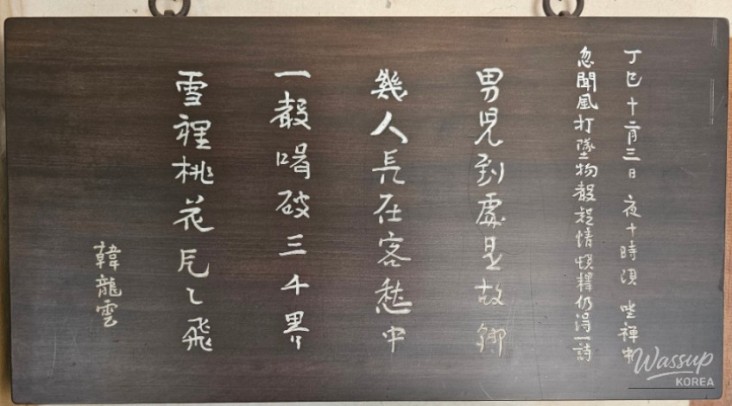 丁巳十二月三日 夜十時頃 坐禪中
忽聞風打墜物聲疑情頓釋仍得一詩
男兒到處是故鄕
幾人長在客愁中
一聲喝破三千界
雪裡桃花片々飛
韓龍雲
Wassup
KOREA